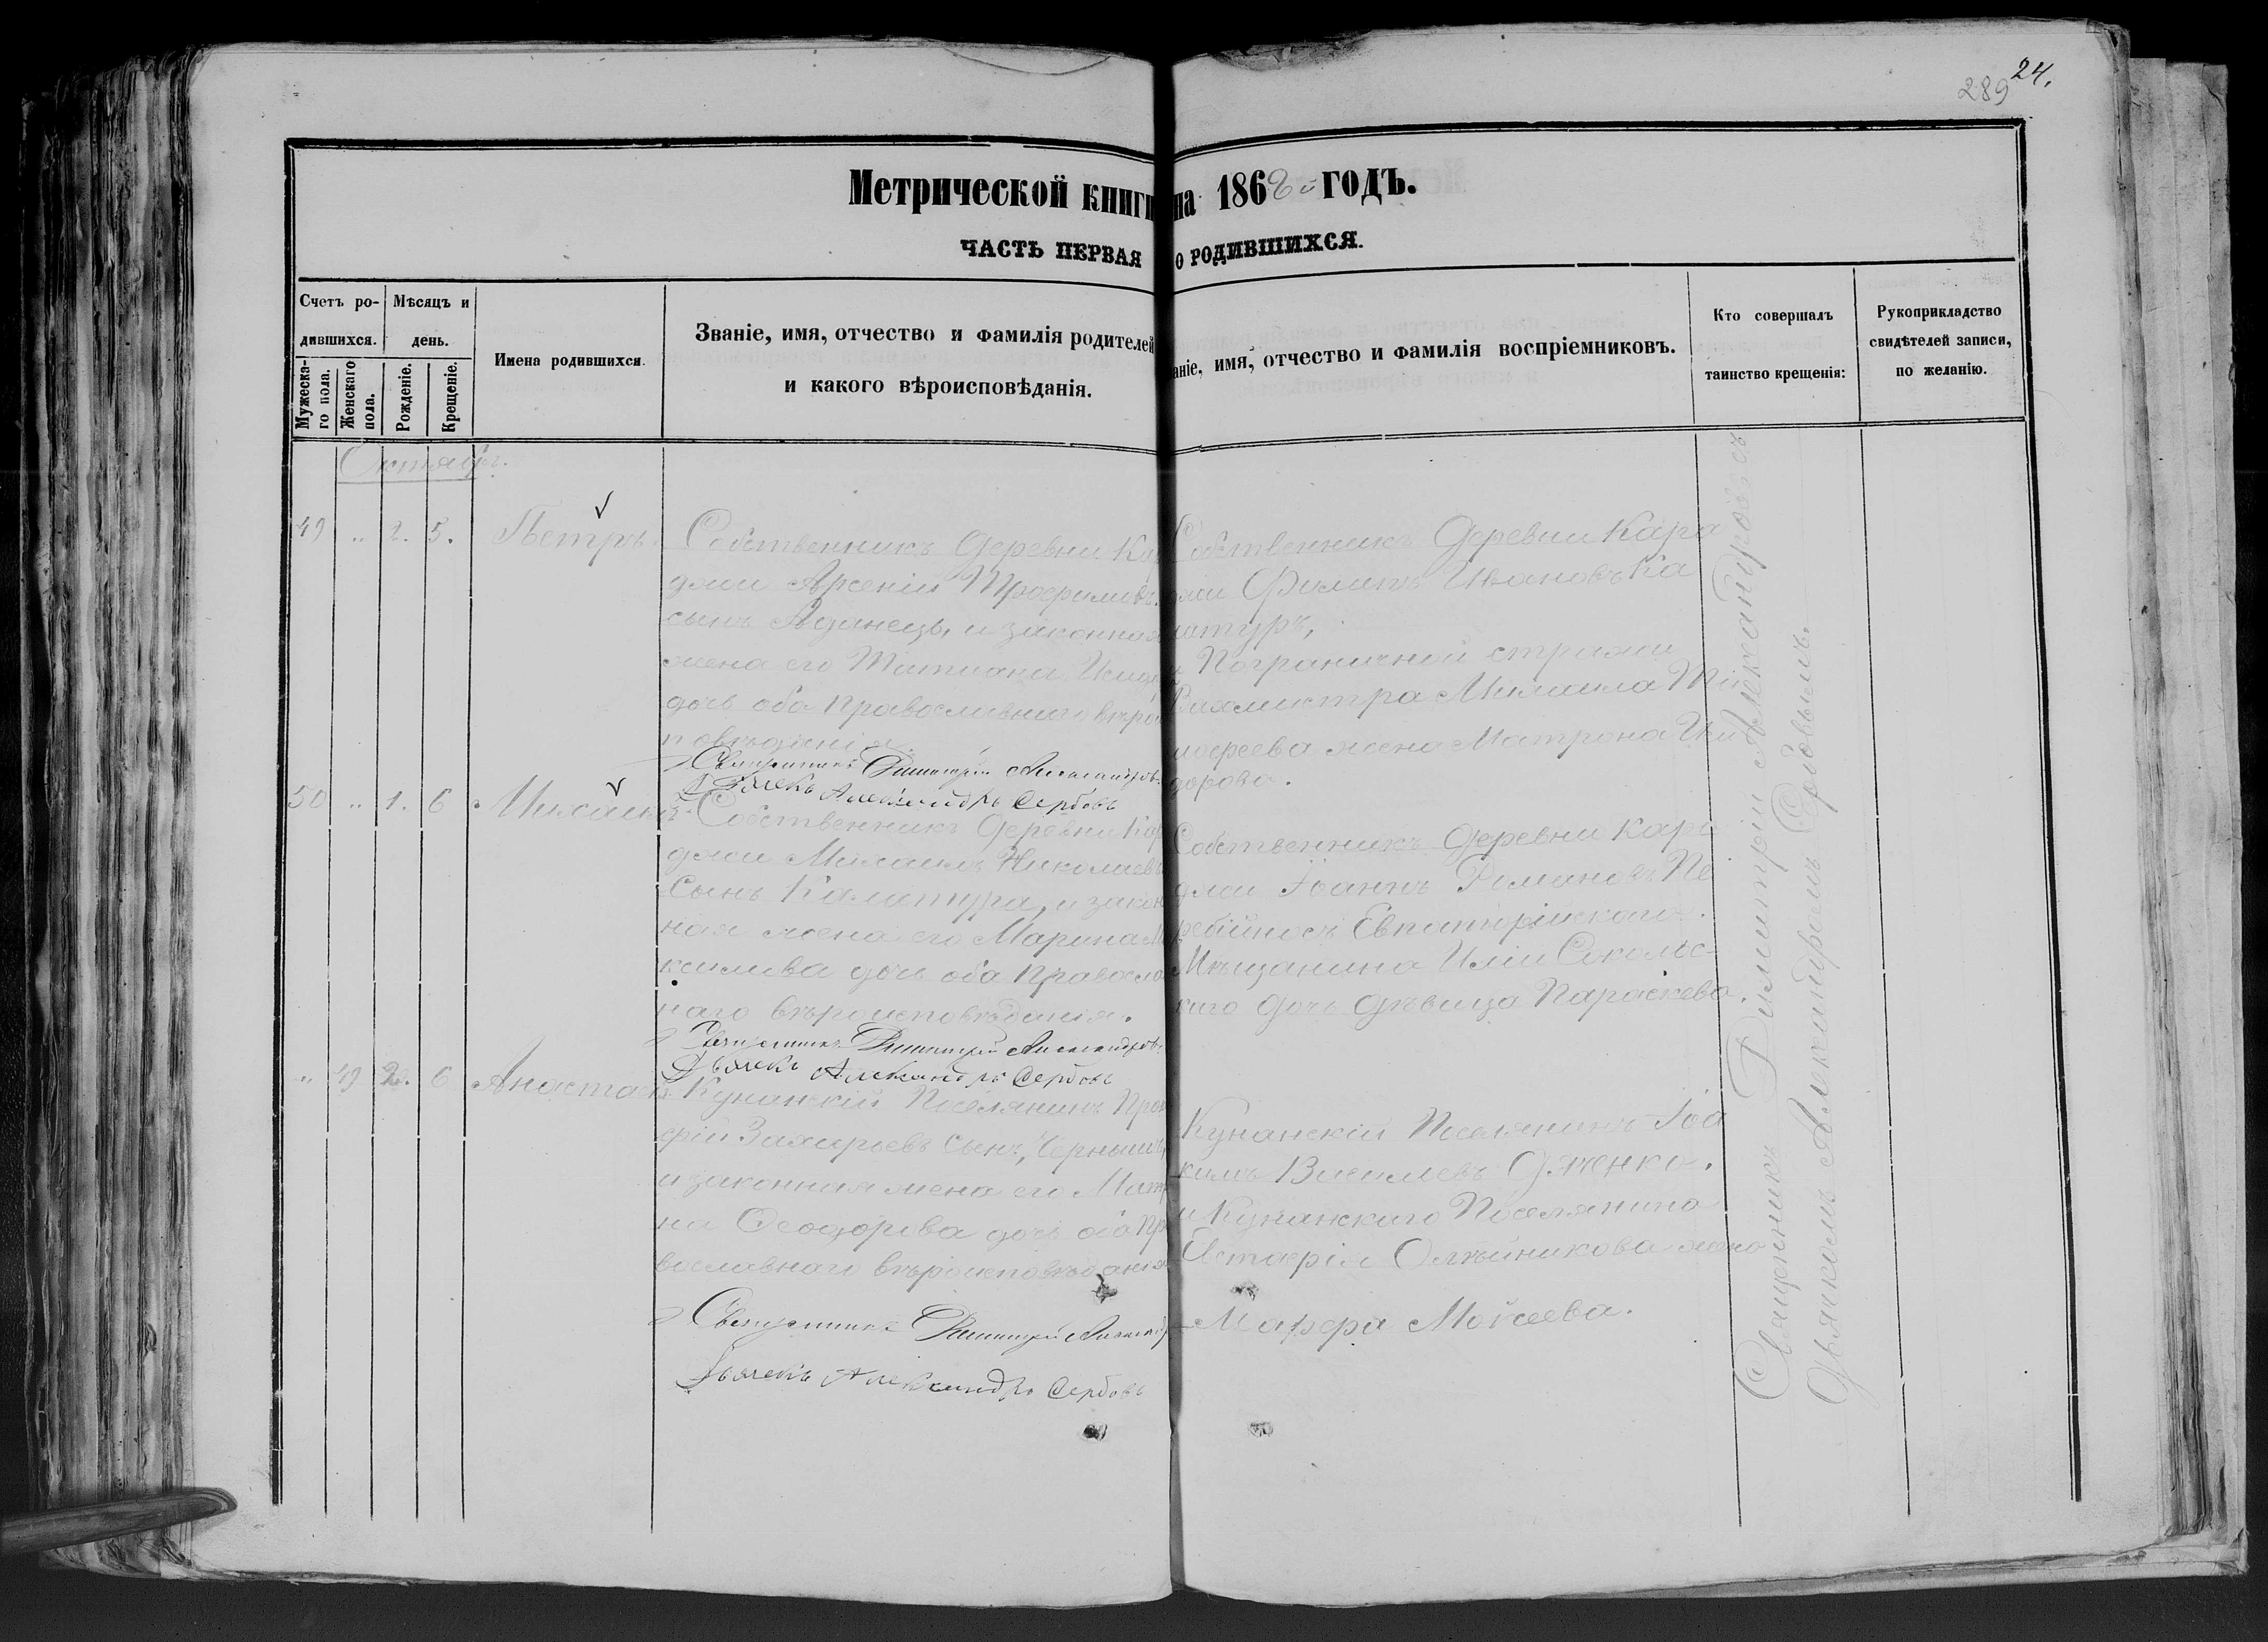 24.
289
Метрической книги на 1868й годъ.
ЧАСТЬ ПЕРВАЯ О РОДИВШИХСЯ.
Счетъ родившихся.
Мужескаго пола.
Женскаго пола.
Мѣсяцъ и день.
Рожденіе.
Крещеніе.
Имена родившихся.
Званіе, имя, отчество и фамилія родителей
и какого вѣроисповѣданія.
аніе, имя, отчество и фамилія воспріемниковъ.
Кто совершалъ
таинство крещенія:
Рукоприкладство
свидѣтелей записи,
по желанію.
Октябрь.
49 " 2. 5. Петръ.
Собственникъ деревни Ка
джи Арсеній Трофимовъ
сынъ Аданецъ, и законная
жена его Татиана
дочь оба православнаго вѣро
повѣданія.
Священникъ Димитрій Александров
Дьячекъ Александръ Сербовъ
Собственникъ деревни Кара
джи Филипъ Ивановъ Ка
латуръ,
и Пограничной стражи
Вахмистра Михаила Ти
мофеева жена Матрона Иси
дорова.
50 " 1. 6 Михаилъ
Собственникъ деревни Кар
джи Михаилъ Николаевъ
сынъ Калатура, и закон
ная жена его Марина Ма
ксимова дочь оба Правосла
наго вѣроисповѣданія.
Священникъ Димитрій Александровъ
Дьячекъ Александръ Сербовъ
Собственникъ деревни Кара
джи Іоаннъ Романовъ Пе
ребійносъ Евпаторійскаго
Мѣщанина Иліи Сокольс-
каго дочь дѣвица Параскева.
" 49 2. 6 Анастасія
Кунанскій Поселянинъ Про
фій Захарьевъ сынъ, Чернышъ,
и законная жена его Матр
на Ѳеодорова дочь оба Пр
вославнаго вѣроисповѣданія
Священникъ Димитрій Александр
Дьячекъ Александръ Сербовъ
Кунанскій Поселянинъ Іоа
кимъ Василіевъ Дяченко.
и Кунанскаго Поселянина
Евстафія Олѣйникова жена
Марфа Моисеева.
Священникъ Димитрій Александровъ съ
дьячкомъ Александромъ Сербовымъ.